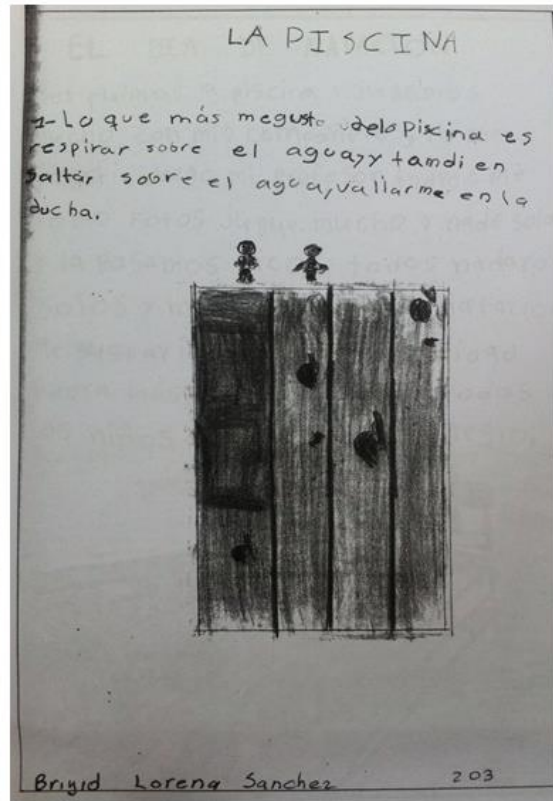 LA PISCINA
1- Lo que más megusto delapiscina es
respirar sobre el agua,y tamdi en
saltar sobre el agua,vallarme en la
ducha.
Briyid Lorena Sanchez 203